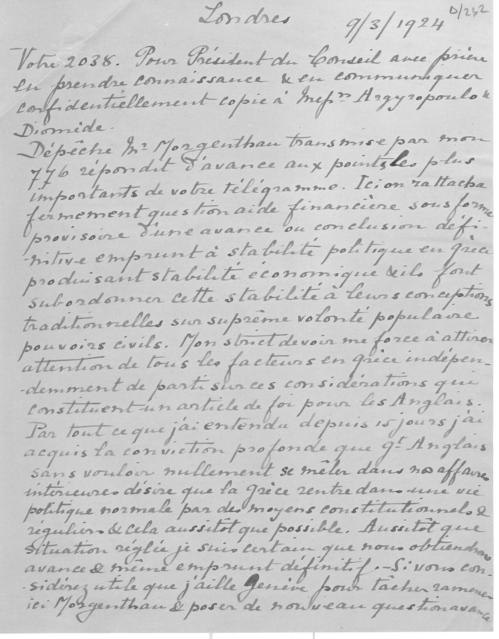 Londres
9/3/1924 D/242
Votre 2038. Pour Président du Conseil avec prière
en prendre connaissance & en communiquer
confidentiellement copie à Messrs Argyropoulo &
Diomide.
Dépêche Mr Morgenthau transmise par mon
776 répondit d'avance aux points les plus
importants de votre télégramme. Ici on rattacha
fermement question aide financière sous forme
provisoire d'une avance ou conclusion défi-
nitive emprunt à stabilité politique en Grèce
produisant stabilité économique & ils font
subordonner cette stabilité à leurs conceptions
traditionnelles sur suprême volonté populaire
pouvoirs civils. Mon strict devoir me force à attirer
attention de tous les facteurs en Grèce indépen-
demment de parti sur ces considérations qui
constituent un article de foi pour les Anglais.
Par tout ce que j'ai entendu depuis 15 jours j'ai
acquis la conviction profonde que gt Anglais
sans vouloir nullement se mêler dans nos affaires
intérieures désire que la Grèce rentre dans une vie
politique normale par des moyens constitutionnels &
réguliers & cela aussitot que possible. Aussitot que
situation réglée je suis certain que nous obtiendrons
avance & même emprunt définitif.- Si vous con-
sidérez utile que j'aille Genève pour tâcher ramener
ici Morgenthau & poser de nouveau question avance